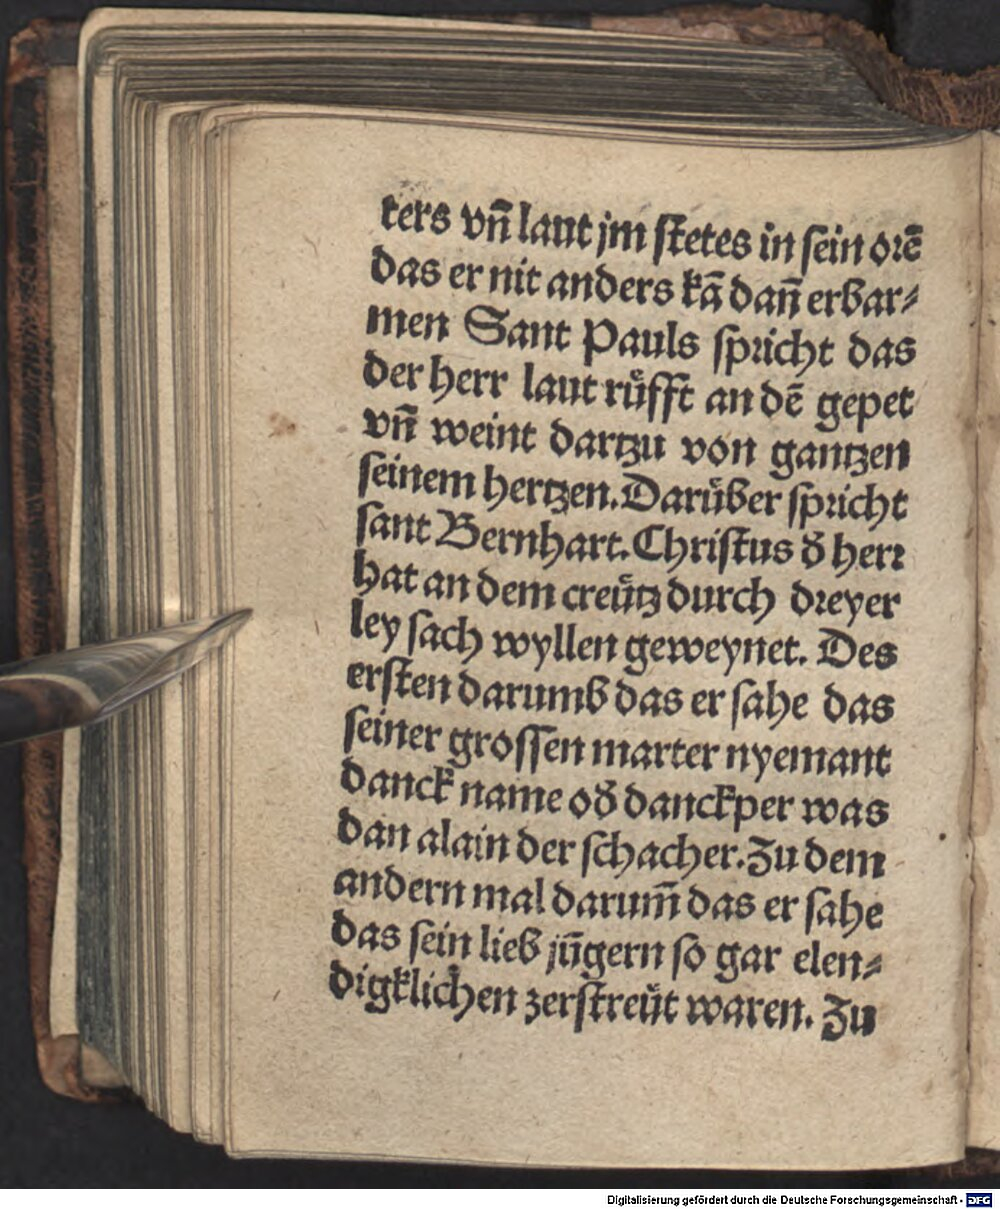 ters vñ laut jm ſtetes in ſein orē
das er nit anders kā dañ erbar⸗
men Sant Pauls ſpricht das
der herr laut ruͤfft an dē gepet
vñ weint dartzu von gantzen
ſeinem hertzen. Daruͤber ſpricht
ſant Bernhart. Chriſtus ð herr
hat an dem creuͤtz durch dreyer
ley ſach wyllen geweynet. Des
erſten darumb das er ſahe das
ſeiner groſſen marter nyemant
danck name oð danckper was
dan alain der ſchacher. Zu dem
andern mal darum̄ das er ſahe
das ſein lieb jūgern ſo gar elen⸗
digklichen zerſtreuͤt waren. Zu
Digitalisierung gefördert durch die Deutsche Forschungsgemeinschaft - DFG